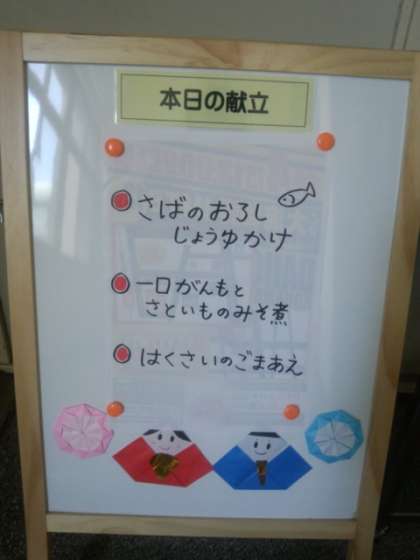 本日の献立
さばのおろし
じょうゆかけ
一口がんもと
さといものみそ煮
はくさいのごまあえ